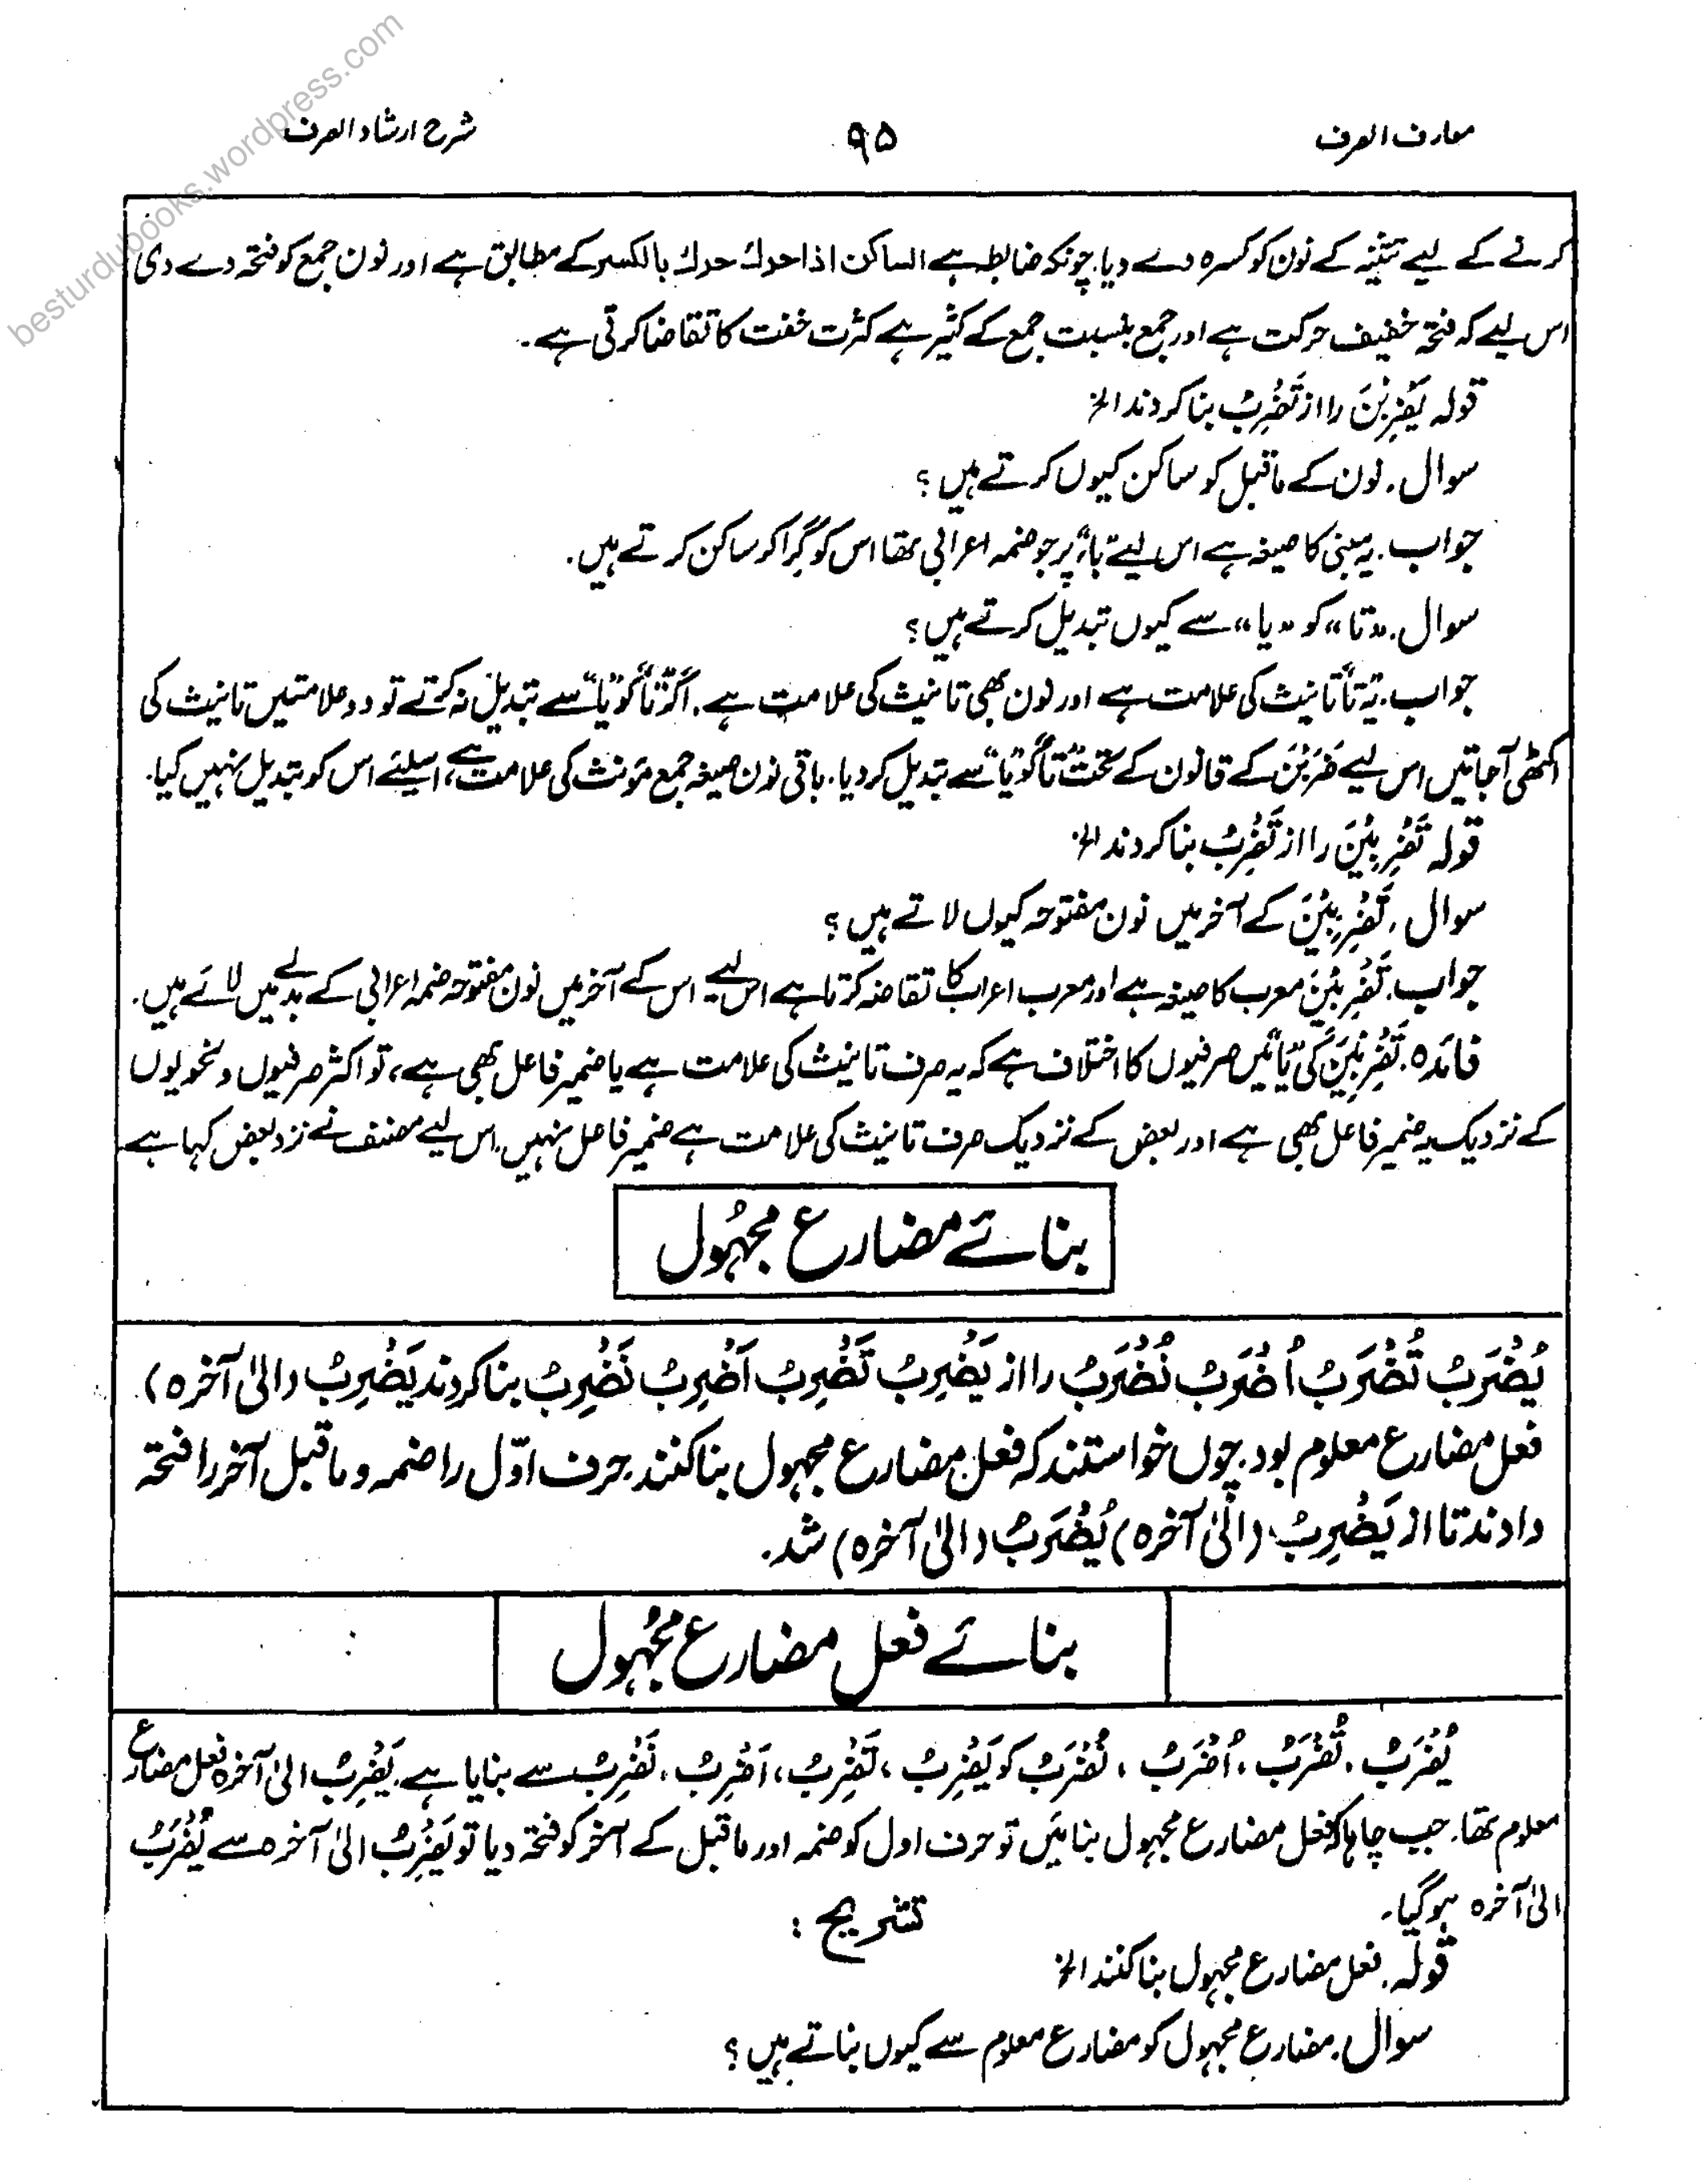 معارف الصرف
۹۵
شرح ارشاد الصرف
کرنے کے لیے تثنیہ کے نون کو کسرہ دے دیا۔ چونکہ ضابطہ ہے الساکن اذا حرك حرك بالکسر کے مطابق ہے اور نون جمع کو فتحہ دے دی
اس لیے کہ فتحہ خفیف حرکت ہے اور جمع بنسبت جمع کے کثیر ہے کثرت خفت کا تقاضا کرتی ہے۔
قولہ یَضْرِبْنَ را از تَضْرِبُ بنا کردند الخ
سوال۔ نون کے ماقبل کو ساکن کیوں کرتے ہیں؟
جواب۔ یہ مبنی کا صیغہ ہے اس لیے "باء" پر جو ضمہ اعرابی تھا اس کو گرا کو ساکن کرتے ہیں۔
سوال۔ "تا" کو "یا" سے کیوں تبدیل کرتے ہیں؟
جواب۔ یہ "تا" تانیث کی علامت ہے اور نون بھی تانیث کی علامت ہے۔ اگر "تا" کو "یا" سے تبدیل نہ کرتے تو دو علامتیں تانیث کی
اکٹھی آجاتیں اس لیے ضَرَبْنَ کے قانون کے تحت "تا" کو "یا" سے تبدیل کر دیا۔ باقی نون صیغہ جمع مؤنث کی علامت ہے، اسلئے اس کو تبدیل نہیں کیا۔
قولہ تَضْرِبِیْنَ را از تَضْرِبُ بنا کردند الخ
سوال۔ تَضْرِبِیْنَ کے آخر میں نون مفتوحہ کیوں لاتے ہیں؟
جواب۔ تَضْرِبِیْنَ معرب کا صیغہ ہے اور معرب اعراب کا تقاضہ کرتا ہے اس لیے اس کے آخر میں نون مفتوحہ ضمہ اعرابی کے بدلے میں لائے ہیں۔
فائدہ۔ تَضْرِبِیْنَ کی "یا" میں صرفیوں کا اختلاف ہے کہ یہ صرف تانیث کی علامت ہے یا ضمیر فاعل بھی ہے، تو اکثر صرفیوں و نحویوں
کے نزدیک یہ ضمیر فاعل بھی ہے اور بعض کے نزدیک صرف تانیث کی علامت ہے ضمیر فاعل نہیں۔ اس لیے مصنف نے نزد بعض کہا ہے
بنائے مضارع مجہُول
یُضْرَبُ تُضْرَبُ اُضْرَبُ نُضْرَبُ را از یَضْرِبُ تَضْرِبُ اَضْرِبُ نَضْرِبُ بنا کردند یَضْرِبُ (الیٰ آخرہ)
فعل مضارع معلوم بود۔ چوں خواستند کہ فعل مضارع مجہول بنا کنند۔ حرف اوّل را ضمہ و ماقبل آخر را فتحہ
دادند تا از یَضْرِبُ (الیٰ آخرہ) یُضْرَبُ (الیٰ آخرہ) شد۔
بنائے فعل مضارع مجہُول
یُضْرَبُ، تُضْرَبُ، اُضْرَبُ، نُضْرَبُ کو یَضْرِبُ، تَضْرِبُ، اَضْرِبُ، نَضْرِبُ سے بنایا ہے۔ یَضْرِبُ الیٰ آخرہ فعل مضارع
معلوم تھا۔ جب چاہا کہ فعل مضارع مجہول بنائیں تو حرف اول کو ضمہ اور ماقبل کے آخر کو فتحہ دیا تو یَضْرِبُ الیٰ آخرہ سے یُضْرَبُ
الیٰ آخرہ ہوگیا۔
تشریح:
قولہ۔ فعل مضارع مجہول بنا کنند الخ
سوال۔ مضارع مجہول کو مضارع معلوم سے کیوں بناتے ہیں؟
besturdubooks.wordpress.com